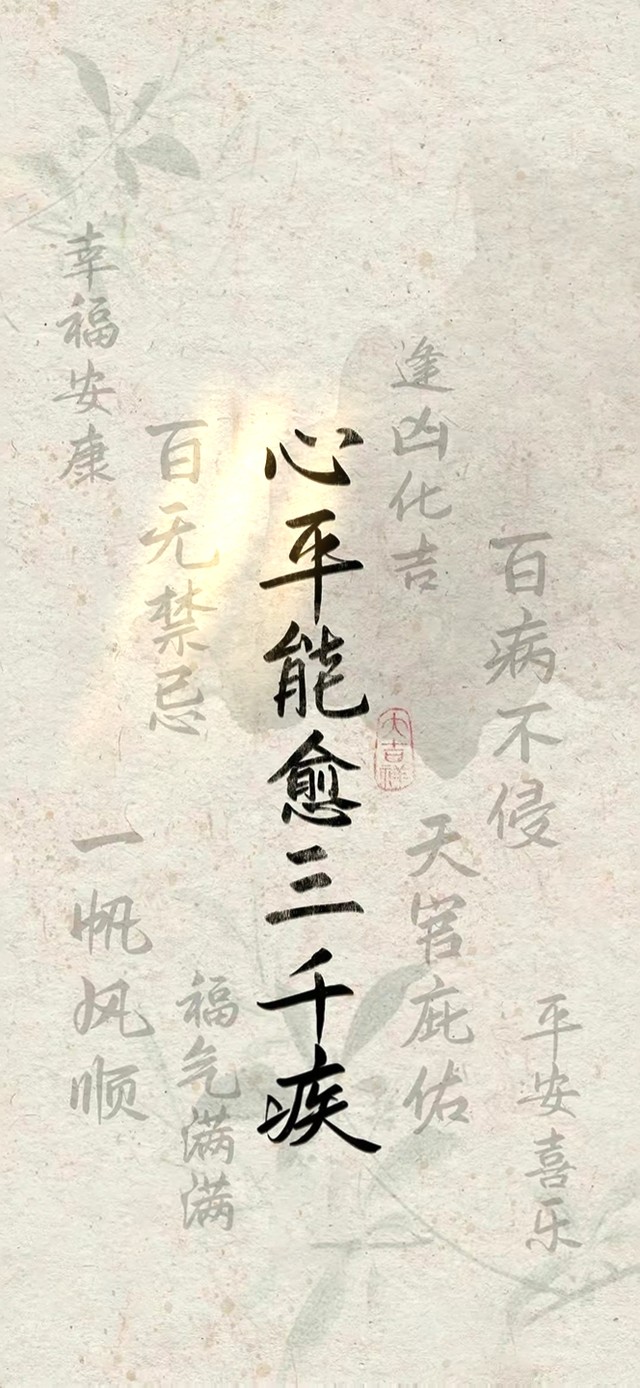 心平能愈三千疾
大吉祥
幸福安康
百无禁忌
逢凶化吉
百病不侵
一帆风顺
福气满满
天官庇佑
平安喜乐